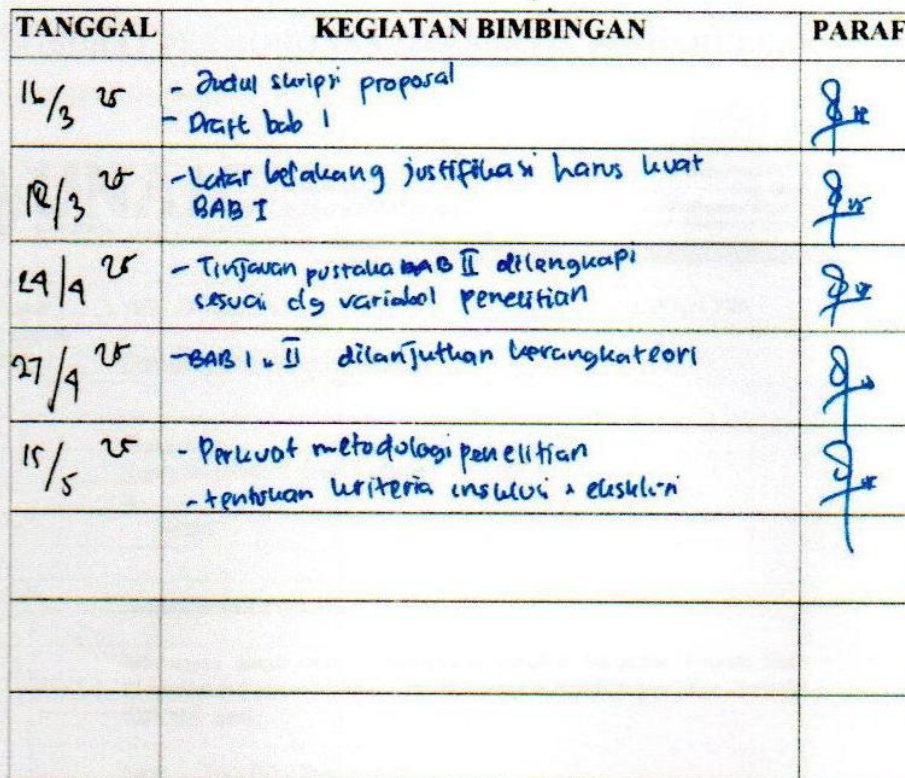 TANGGAL KEGIATAN BIMBINGAN PARAF
16/3 25 - Judul skripsi proposal
- Draft bab 1
25 - Latar belakang justifikasi harus kuat
BAB I
24/4 25 - Tinjauan pustaka BAB II dilengkapi
sesuai dg variabel penelitian
27/4 25 - BAB I & II dilanjutkan kerangka teori
15/5 25 - Perkuat metodologi penelitian
- tentukan kriteria insklusi & eksklusi